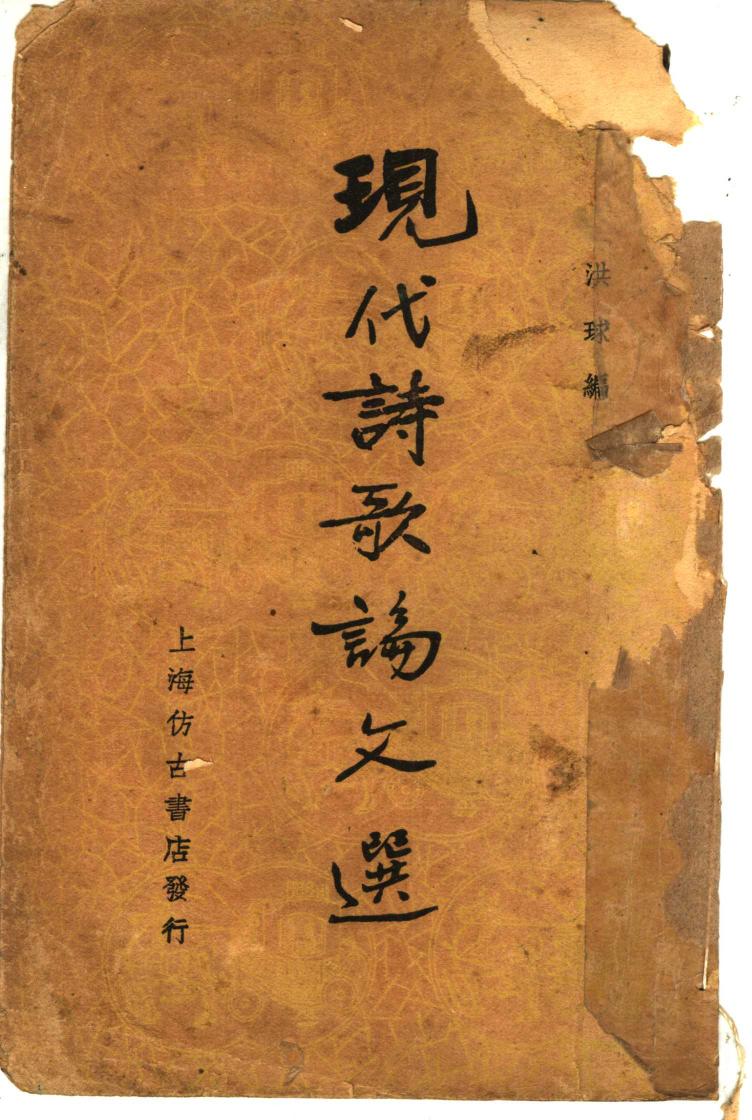 洪球編
現代詩歌論文選
上海仿古書店發行